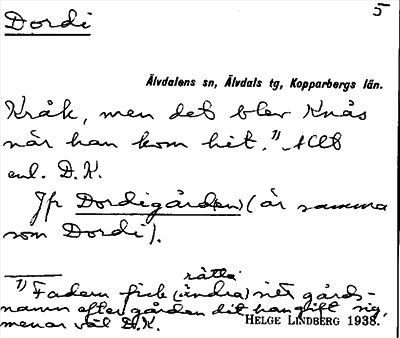 Dordi
5
Älvdalens sn, Älvdals tg, Kopparbergs län.
Kråk, men det blev Knås
når han kom hit.¹⁾ Allt
enl. D.K.
Jfr Dordigården (är samma
som Dordi).
rätta
¹⁾ Fadern fick (ändra) sitt gårds-
namn efter gården dit han gift sig,
menar väl D.K.
HELGE LINDBERG 1938.